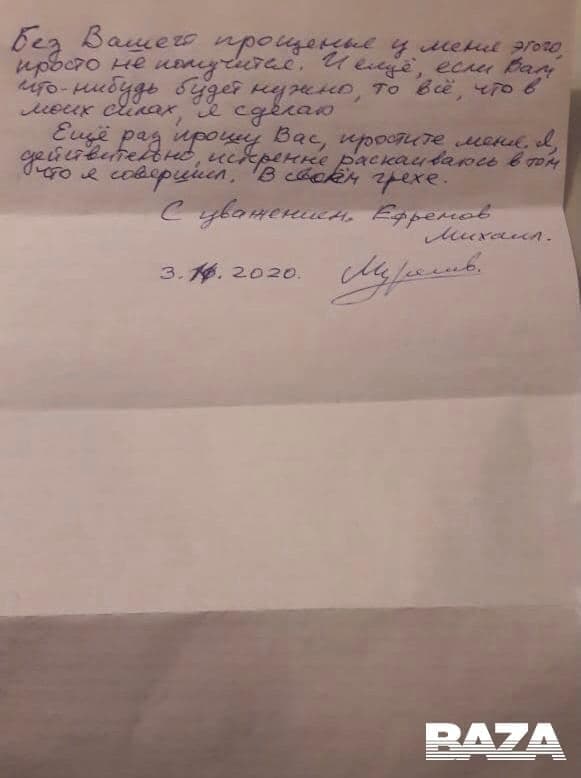 Без Вашего прощенье у меня этого,
просто не получится. И ещё, если Вам
что-нибудь будет нужно, то всё, что в
моих силах, я сделаю
Ещё раз прошу Вас, простите меня. Я,
действительно, искренне раскаиваюсь в том
что я совершил. В своём грехе.
С уважением. Ефремов
Михаил.
3. .2020.
BAZA